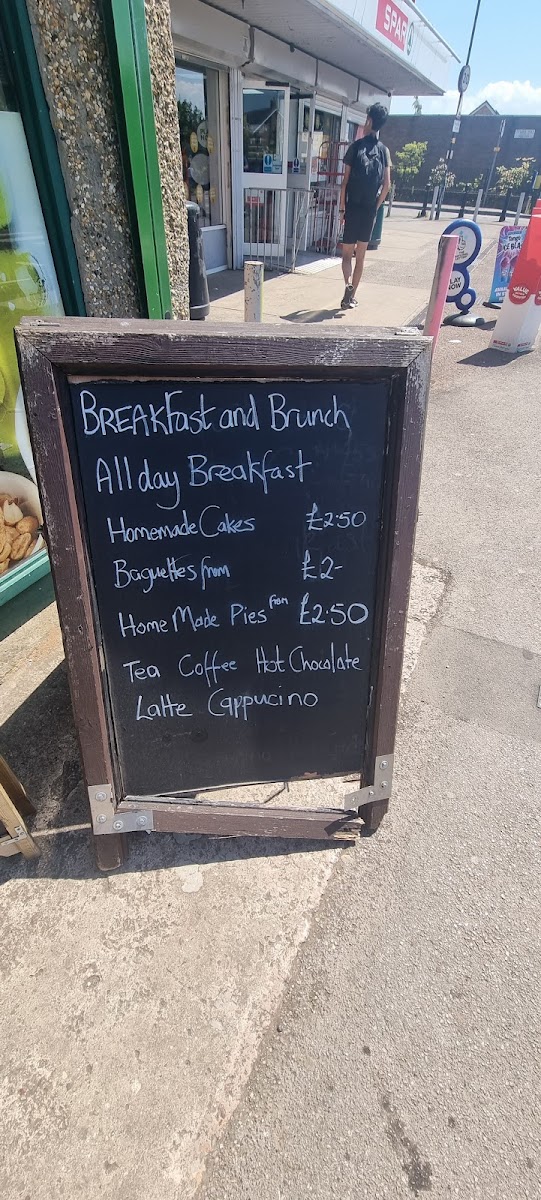 SPAR
BREAKfast and Brunch
All day Breakfast
Homemade Cakes £2.50
Baguettes from £2-
Home Made Pies From £2.50
Tea Coffee Hot Chocolate
Latte Cappucino